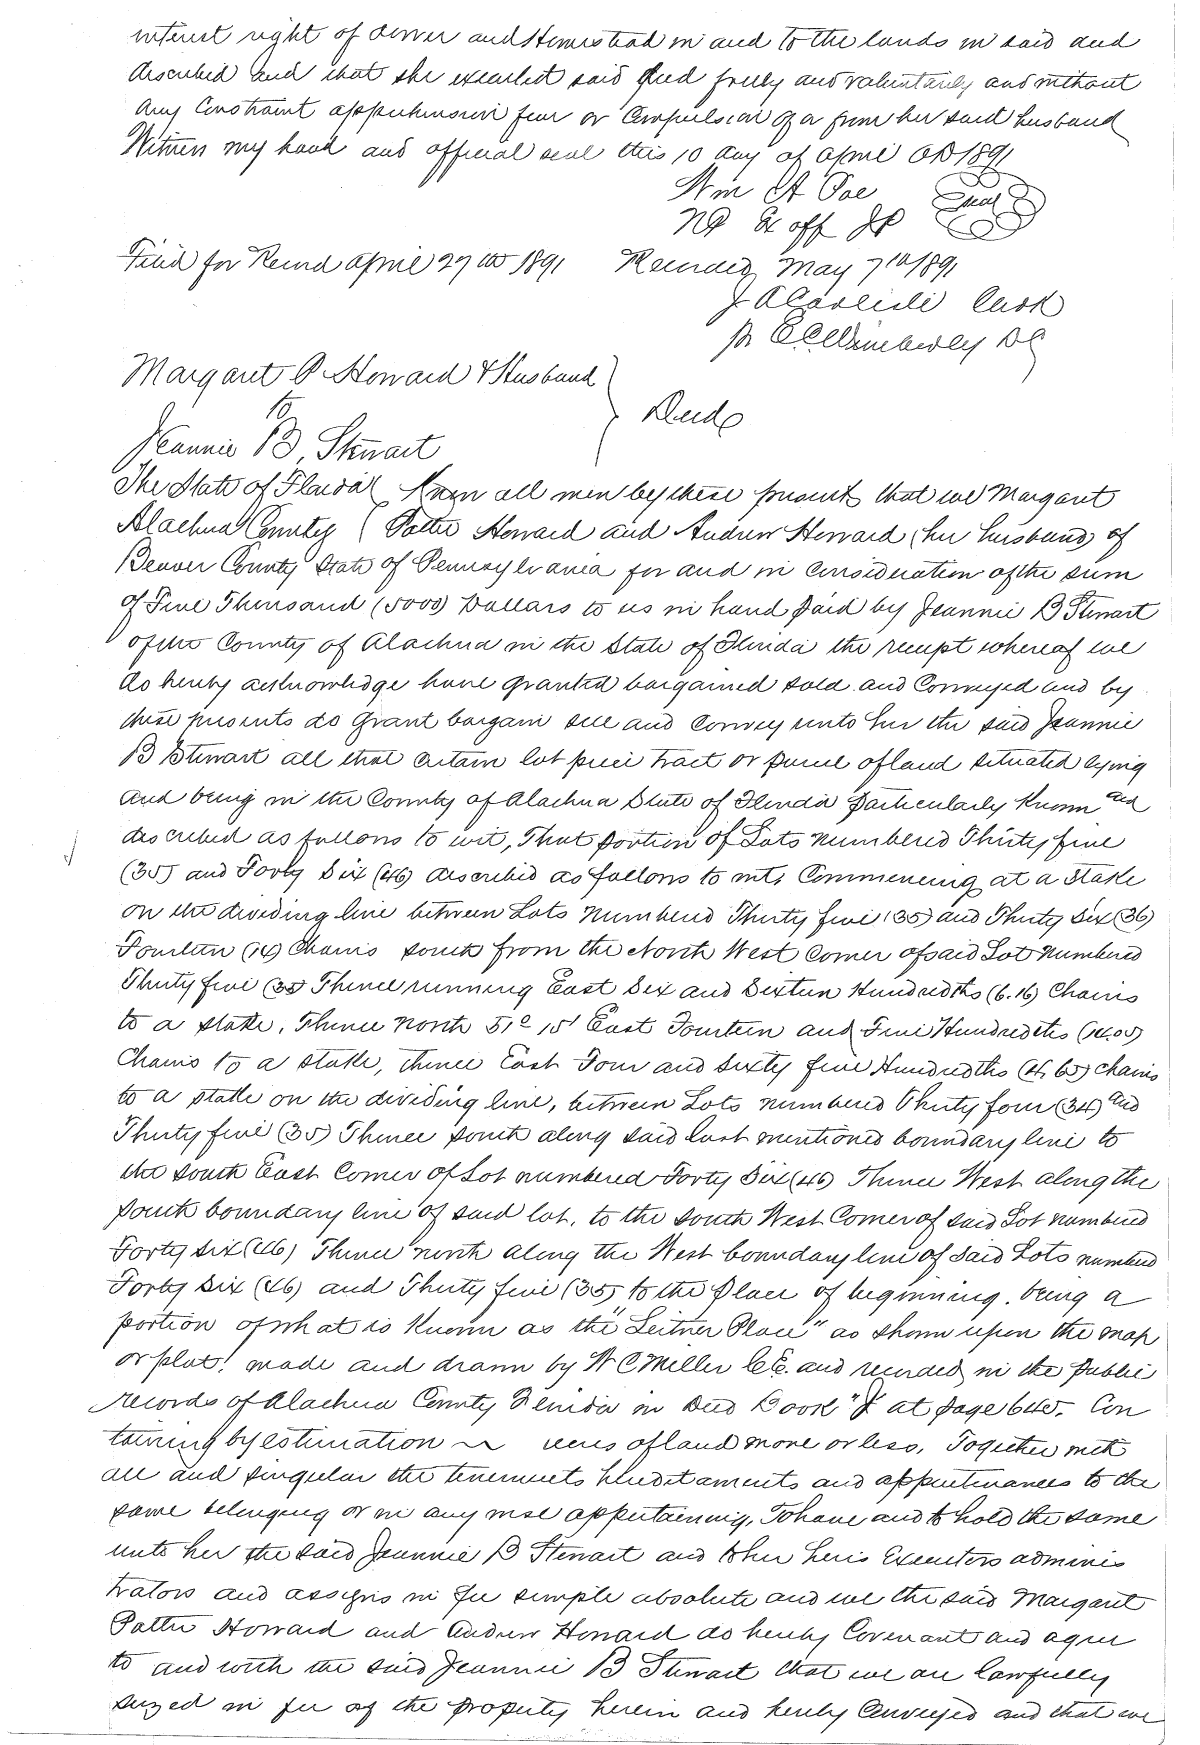 interest right of dower and Homestead in and to the lands in said and
described and that she executed said deed freely and voluntarily and without
any Constraint apprehension fear or Compulsion of or from her said husband
Witness my hand and official seal this 10 day of April AD 1891
Wm A Poe Seal
NP Ex off JP
Filed for Record April 27th 1891 Recorded May 7th 1891
J A Carlisle Clerk
Pr E C Wimberley DC
Margaret P Howard & Husband
to Deed
Jeannie B Stewart
The State of Florida Know all men by these presents that we Margaret
Alachua County Pattie Howard and Andrew Howard (her husband) of
Beaver County State of Pennsylvania for and in Consideration of the sum
of Five Thousand (5000) Dollars to us in hand paid by Jeannie B Stewart
of the County of Alachua in the State of Florida the receipt whereof we
do hereby acknowledge have granted bargained sold and Conveyed and by
these presents do grant bargain sell and Convey unto her the said Jeannie
B Stewart all that certain lot piece tract or parcel of land situated lying
and being in the County of Alachua State of Florida particularly Known and
described as follows to wit, That portion of Lots numbered Thirty five
(35) and Forty Six (46) described as follows to wit, Commencing at a Stake
on the dividing line between Lots numbered Thirty five (35) and Thirty Six (36)
Fourteen (14) Chains south from the North West Corner of said Lot numbered
Thirty five (35) Thence running East Six and Sixteen Hundredths (6.16) Chains
to a stake, Thence North 51° 15' East Fourteen and Five Hundredths (14.05)
Chains to a stake, thence East Four and Sixty five Hundredths (4.65) chains
to a stake on the dividing line, between Lots numbered Thirty four (34) and
Thirty five (35) Thence south along said last mentioned boundary line to
the South East Corner of Lot numbered Forty Six (46) Thence West along the
South boundary line of said lot, to the South West Corner of said Lot numbered
Forty six (46) Thence north along the West boundary line of said Lots numbered
Forty Six (46) and Thirty five (35) to the Place of beginning. being a
portion of what is Known as the "Leitner Place" as shown upon the map
or plat, made and drawn by W C Miller C.E. and recorded in the Public
records of Alachua County Florida in Deed Book "J" at page 645. Con
taining by estimation acres of land more or less, Together with
all and singular the tenements hereditaments and appurtenances to the
same belonging or in any wise appertaining, To have and to hold the same
unto her the said Jeannie B Stewart and to her heirs Executors adminis
trators and assigns in fee simple absolute and we the said Margaret
Pattie Howard and Andrew Howard do hereby Covenant and agree
to and with the said Jeannie B Stewart that we are lawfully
seized in fee of the property herein and hereby Conveyed and that we